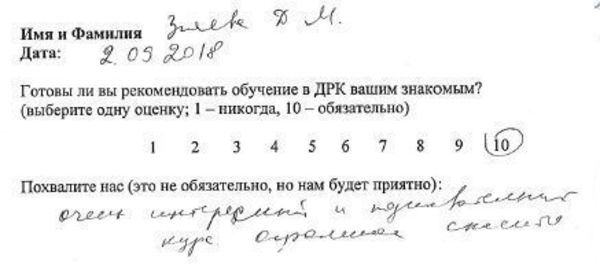 Имя и Фамилия Зиева Д М.
Дата: 2.09 2018
Готовы ли вы рекомендовать обучение в ДРК вашим знакомым?
(выберите одну оценку; 1 – никогда, 10 – обязательно)
1 2 3 4 5 6 7 8 9 10
Похвалите нас (это не обязательно, но нам будет приятно):
очень интересный и познавательный
курс огромное спасибо